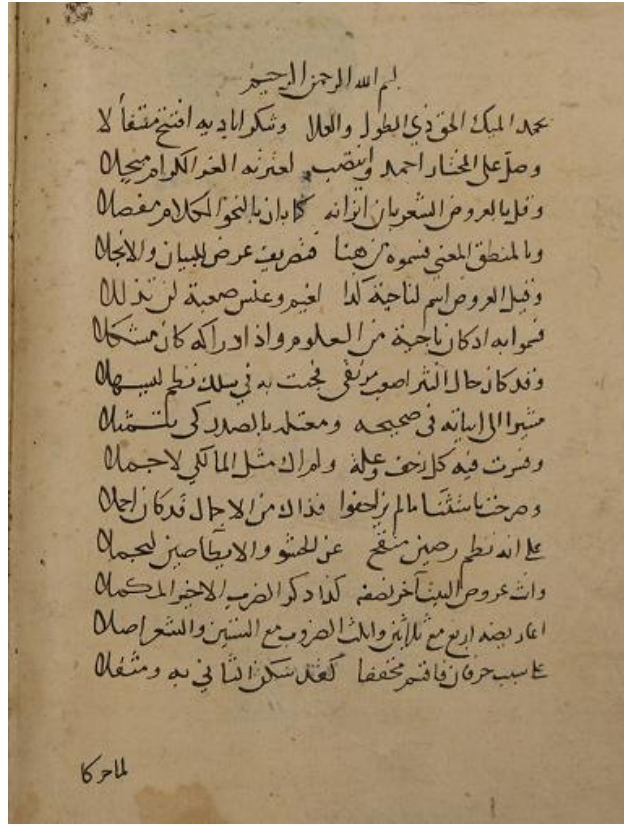 بسم الله الرحمن الرحيم
بحمد المليك الحق ذي الطول والعلا وشكر اياديه افتتح متفألا
وصل على المختار احمد وانتصب لعترته الغر الكرام مبجلا
وقل بالعروض الشعر بان اتزانه كما بان بالنحو الكلام مفصلا
وبالمنطق المعنى فسموه من هنا
وقيل العروض اسم لناحية كذا لغيم وعنس صعبة لن تذللا
فسموا به اذ كان ناحية من العلوم واذ ادراكه كان مشكلا
وقد كان حال النثر اصعب مرتقى فجئت به في سلك نظم ليسهلا
مشيرا الى ابياته في صحيحه ومعتله بالصدر كي يتمثلا
وفسرت فيه كل زحف وعلة ولم اك مثل المالكي لاجملا
فذاك من الاجمال قد كان اجملا
على انه نظم رصين منقح عن الحشو والايطا صين ليجملا
وانث عروض البيت آخر نصفه كذا ذكر الضرب الاخير المكملا
اعاريضه اربع مع ثلاثين وابلت الضروب مع الستين والشعر اصلا
على سبب حرفان فاقسم مخففا كقد سكن الثاني به ومثقلا